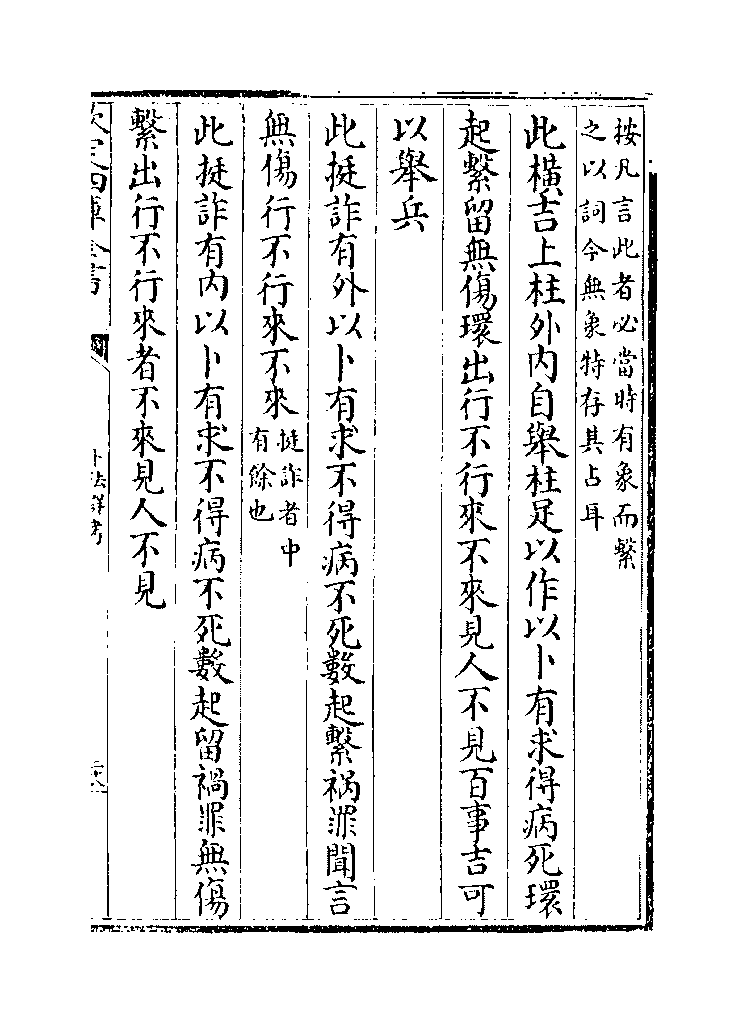 按凡言此者必當時有象而繫
之以詞今無象特存其占耳
此橫吉上柱外內自舉柱足以作以卜有求得病死環
起繫留無傷環出行不行來不來見人不見百事吉可
以舉兵
此挺詐有外以卜有求不得病不死數起繫禍罪聞言
無傷行不行來不來
挺詐者中
有餘也
此挺詐有內以卜有求不得病不死數起留禍罪無傷
繫出行不行來者不來見人不見
欽定四庫全書
卜法詳考